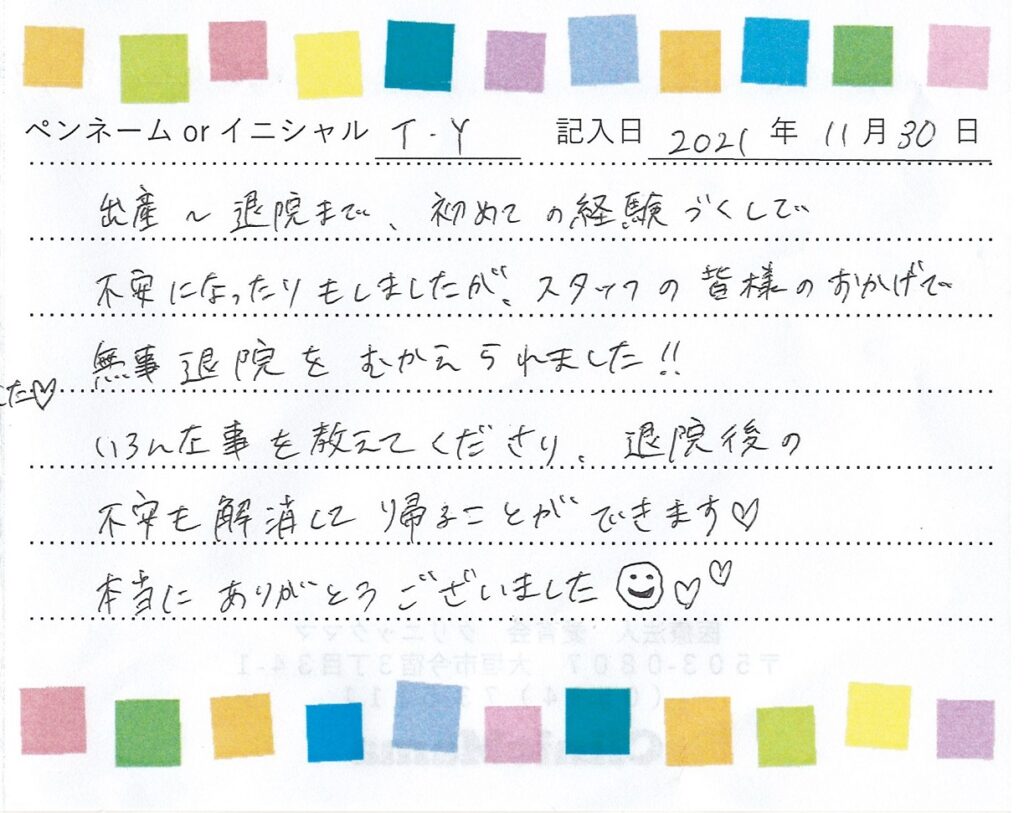 ペンネーム or イニシャル T.Y 記入日 2021 年 11 月 30 日
出産〜退院まで、初めての経験づくしで
不安になったりもしましたが、スタッフの皆様のおかげで
無事退院をむかえられました!!
した♡
いろんな事を教えてくださり、退院後の
不安も解消して帰ることができます♡
本当にありがとうございました
医療法人 愛育会 クリニックママ
〒503-0807 大垣市今宿3丁目34-1